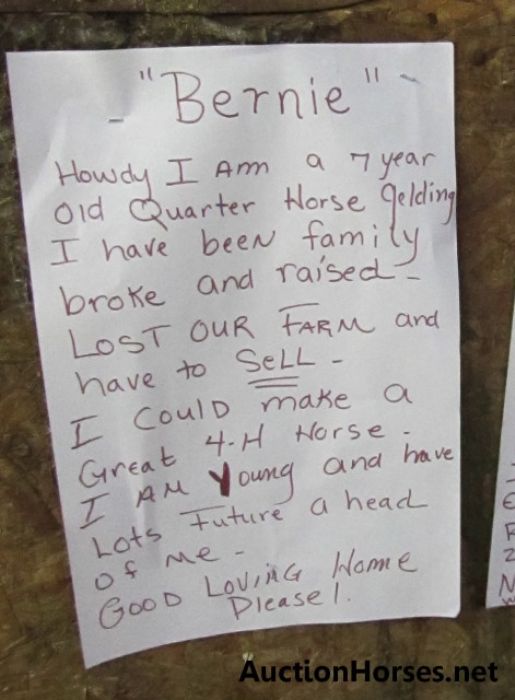 "Bernie"
Howdy I Am a 7 year
Old Quarter Horse gelding
I have been family
broke and raised -
LOST OUR FARM and
have to SeLL -
I COULD make a
Great 4-H Horse -
I AM Young and have
Lots Future a head
Of me -
GOOD LOVING Home
Please!.
AuctionHorses.net